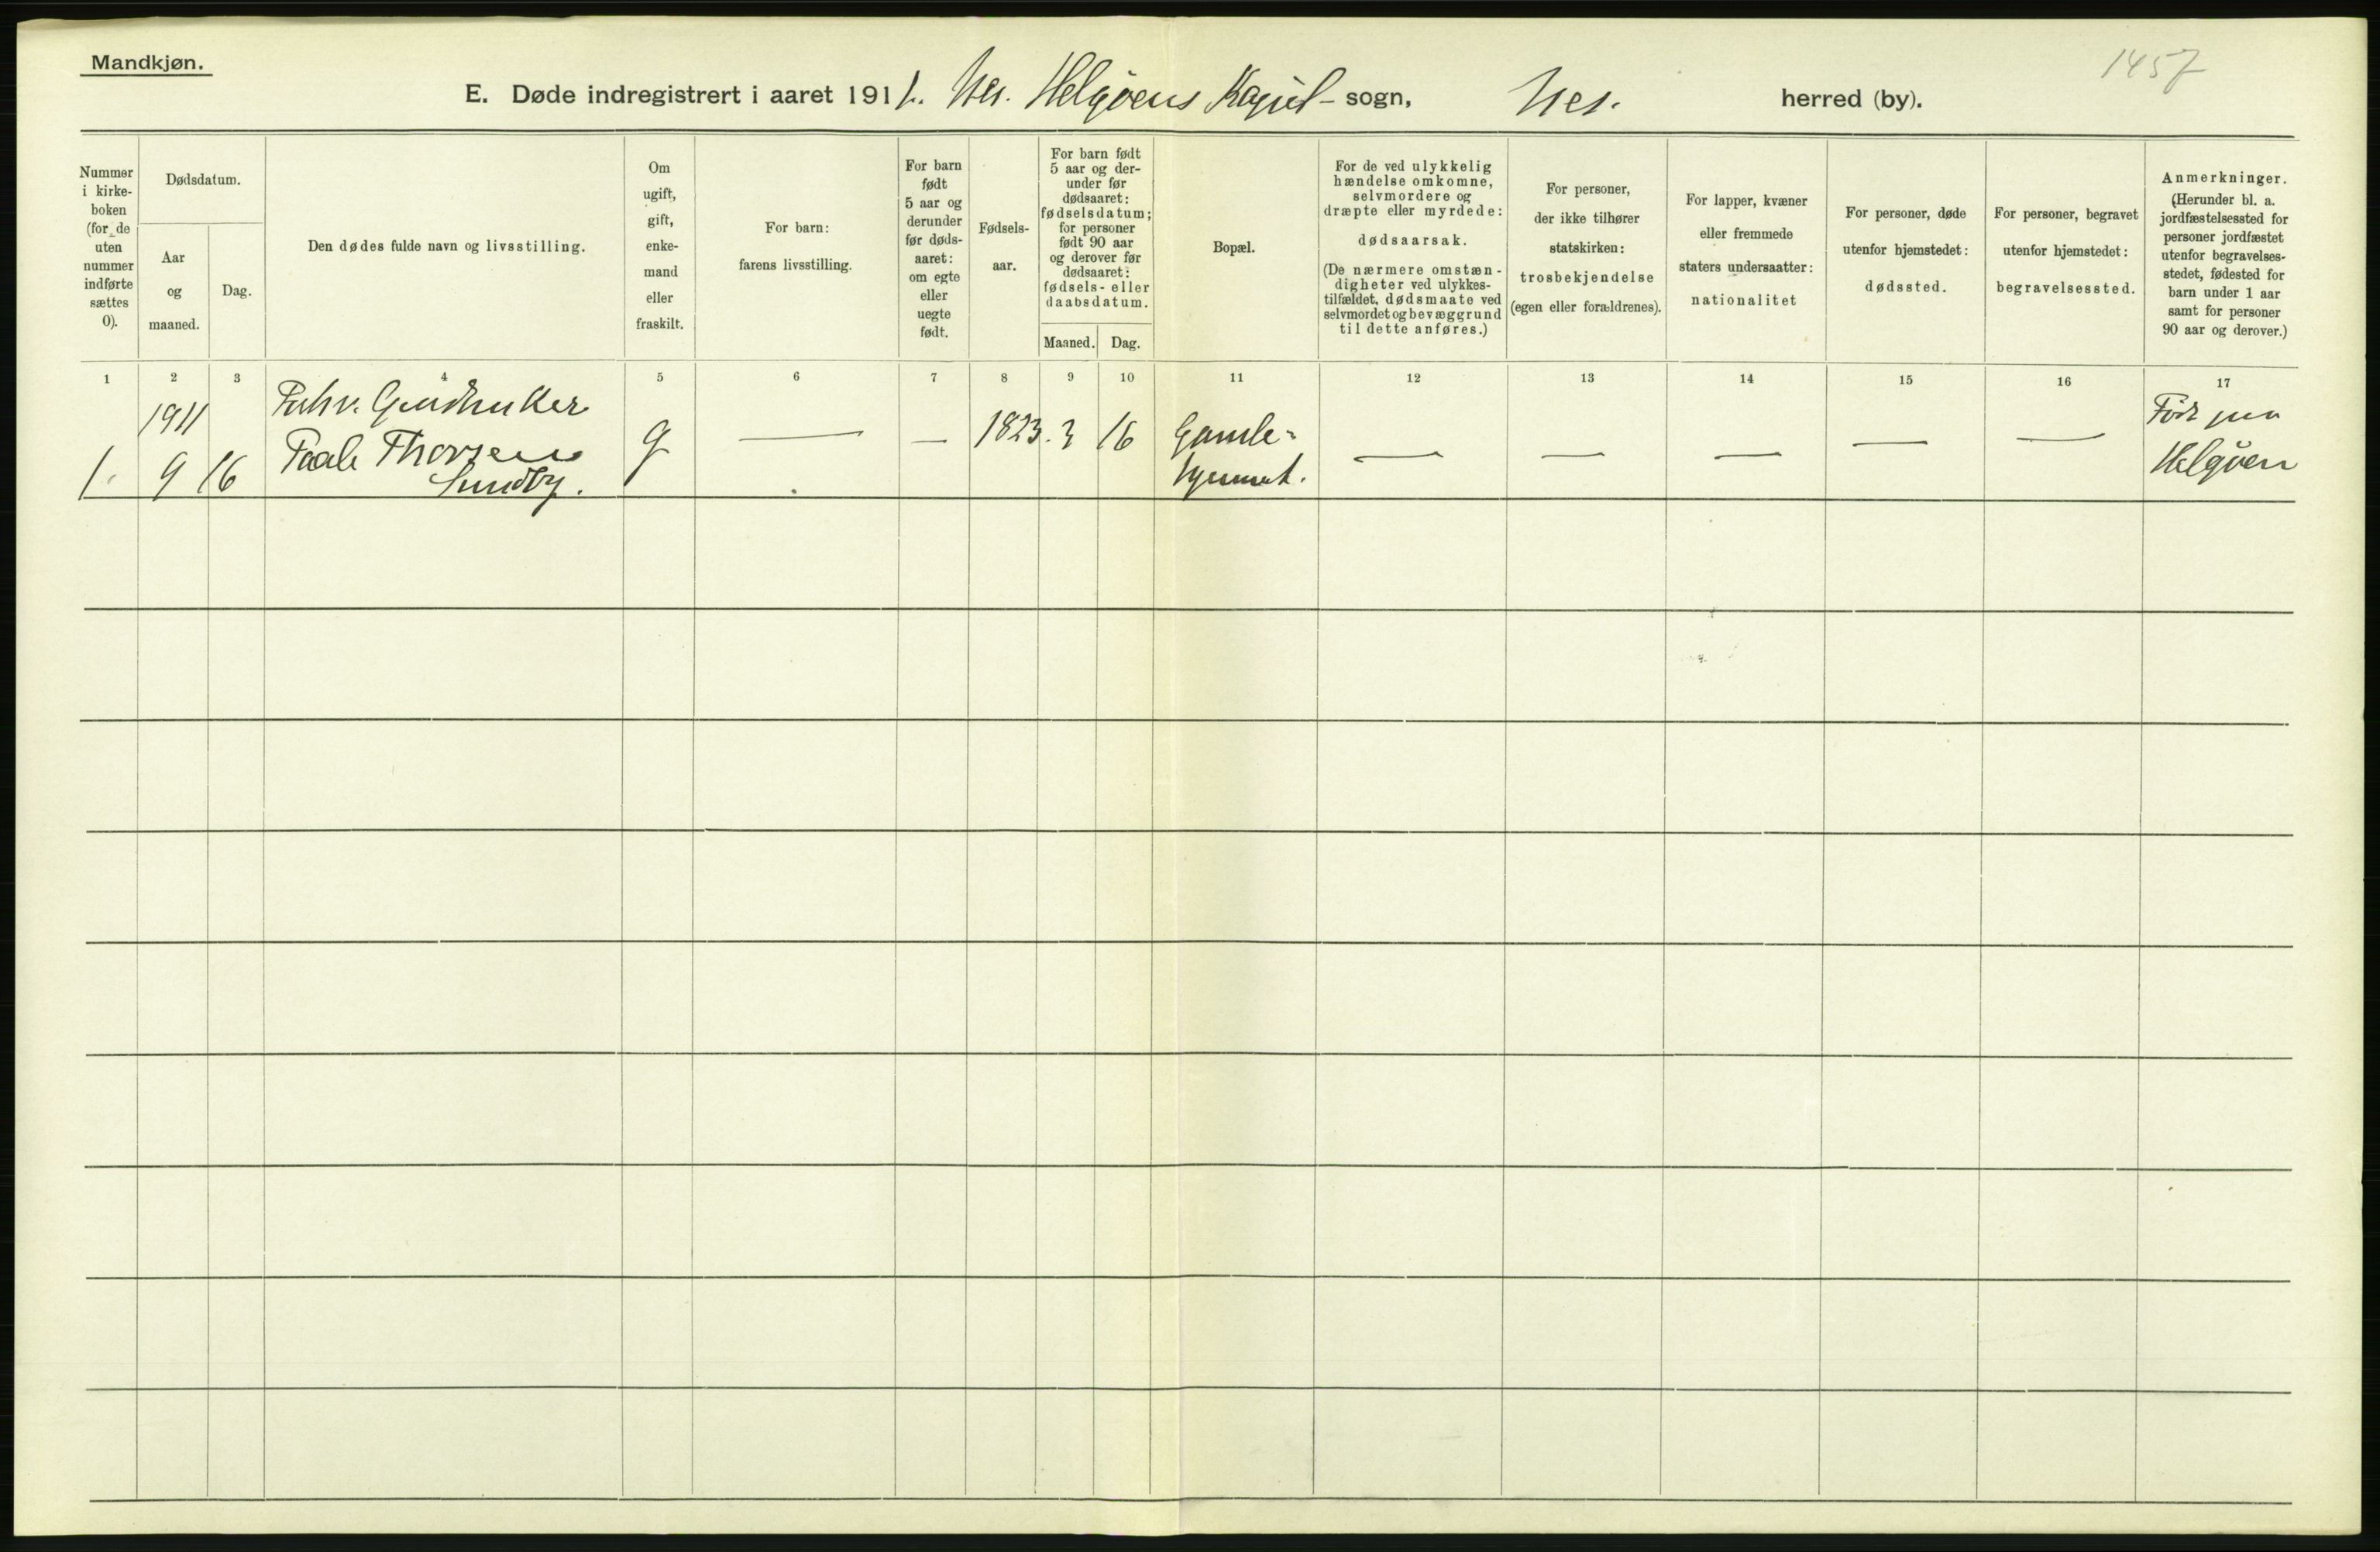 Mandkjøn.
1457
E. Døde indregistrert i aaret 1911. Nes. Helgøens Kapel- sogn, Nes. herred (by).
Nummer
i kirke-
boken
(for de
uten
nummer
indførte
sættes
0).
Dødsdatum.
Aar
og
maaned.
Dag.
Den dødes fulde navn og livsstilling.
Om
ugift,
gift,
enke-
mand
eller
fraskilt.
For barn:
farens livsstilling.
For barn
født
5 aar og
derunder
før døds-
aaret:
om egte
eller
uegte
født.
Fødsels-
aar.
For barn født
5 aar og der-
under før
dødsaaret:
fødselsdatum;
for personer
født 90 aar
og derover før
dødsaaret:
fødsels- eller
daabsdatum.
Maaned.
Dag.
Bopæl.
For de ved ulykkelig
hændelse omkomne,
selvmordere og
dræpte eller myrdede:
dødsaarsak.
(De nærmere omstæn-
digheter ved ulykkes-
tilfældet, dødsmaate ved
selvmordet og bevæggrund
til dette anføres.)
For personer,
der ikke tilhører
statskirken:
trosbekjendelse
(egen eller forældrenes).
For lapper, kvæner
eller fremmede
staters undersaatter:
nationalitet
For personer, døde
utenfor hjemstedet:
dødssted.
For personer, begravet
utenfor hjemstedet:
begravelsessted.
Anmerkninger.
(Herunder bl. a.
jordfæstelsessted for
personer jordfæstet
utenfor begravelses-
stedet, fødested for
barn under 1 aar
samt for personer
90 aar og derover.)
1 2 3 4 5 6 7 8 9 10 11 12 13 14 15 16 17
1911
1. 9 16 Paale Thorsen
Sundby. g — — 1823. 3 16 Gamle-
hjemmet. — — — — — Født paa
Helgøen